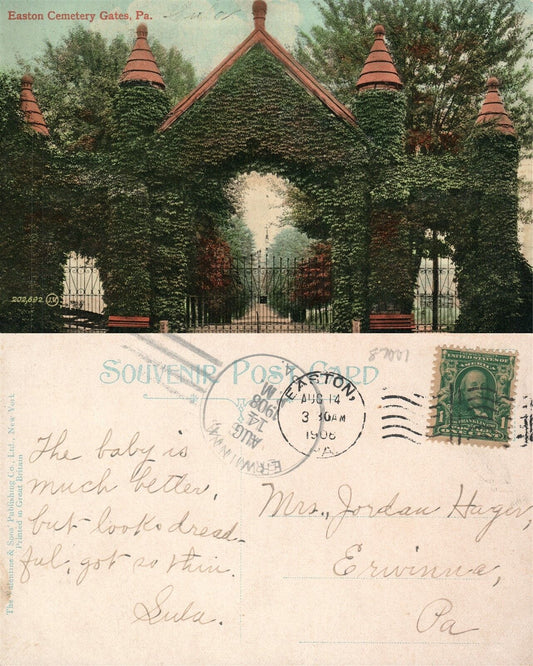 Easton Cemetery Gates, Pa.
202,592 J.V.
87001
SOUVENIR POST CARD
The Valentine & Sons' Publishing Co., Ltd., New York
Printed in Great Britain
ERWINNA
AUG
14
1908
EASTON,
AUG 14
3 30AM
1908
PA.
UNITED STATES OF
AMERICA
FRANKLIN
The baby is
much better,
but looks dread-
ful, got so thin.
Lula.
Mrs., Jordan Hager,
Erwinna,
Pa